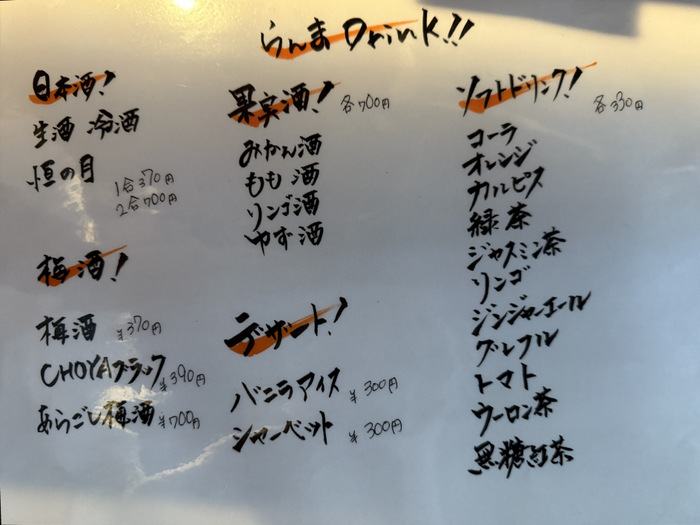 らんま Drink!!
日本酒!
生酒 冷酒
恒の月
1合370円
2合700円
梅酒!
梅酒 ¥370円
CHOYAブラック ¥390円
あらごし梅酒 ¥700円
果実酒! 各700円
みかん酒
もも酒
リンゴ酒
ゆず酒
デザート!
バニラアイス ¥300円
シャーベット ¥300円
ソフトドリンク! 各330円
コーラ
オレンジ
カルピス
緑茶
ジャスミン茶
リンゴ
ジンジャーエール
グレフル
トマト
ウーロン茶
黒糖紅茶